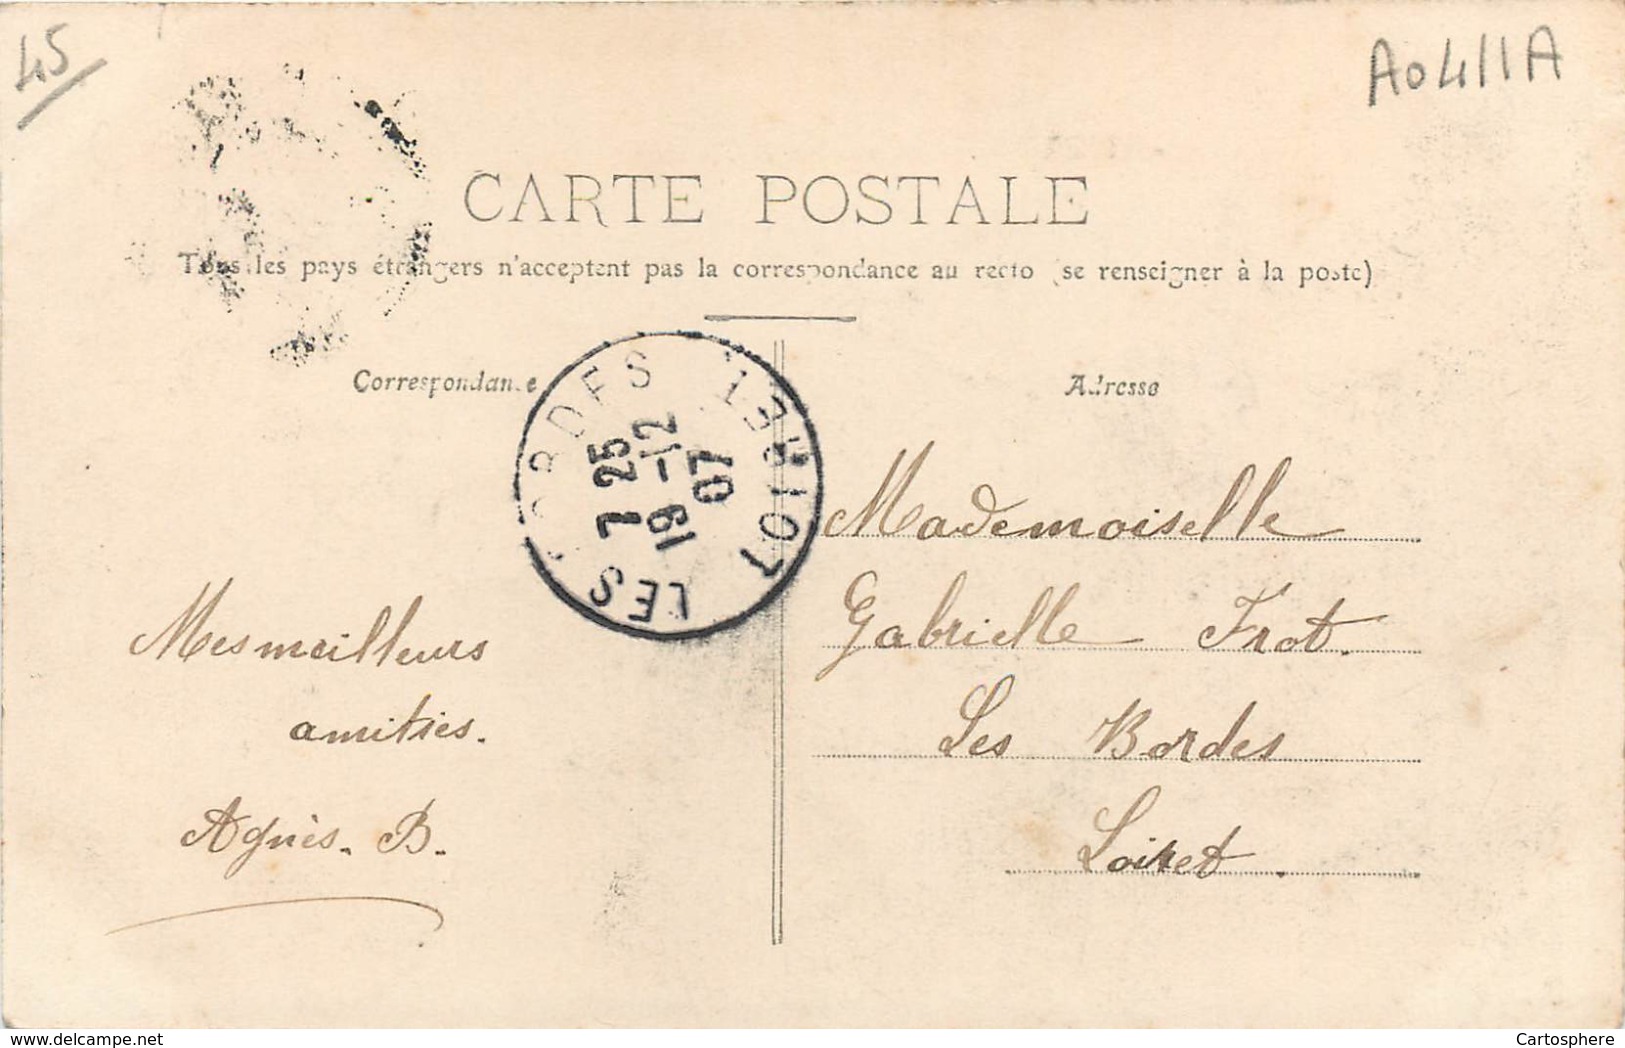 45
A0411A
CARTE POSTALE
Tous les pays étrangers n'acceptent pas la correspondance au recto (se renseigner à la poste)
Correspondance
Adresse
LES BORDES LOIRET
7 25
19 -12
07
Mes meilleurs
amitiés.
Agnès. B.
Mademoiselle
Gabrielle Frot.
Les Bordes
Loiret.
delcampe.net
Cartosphere